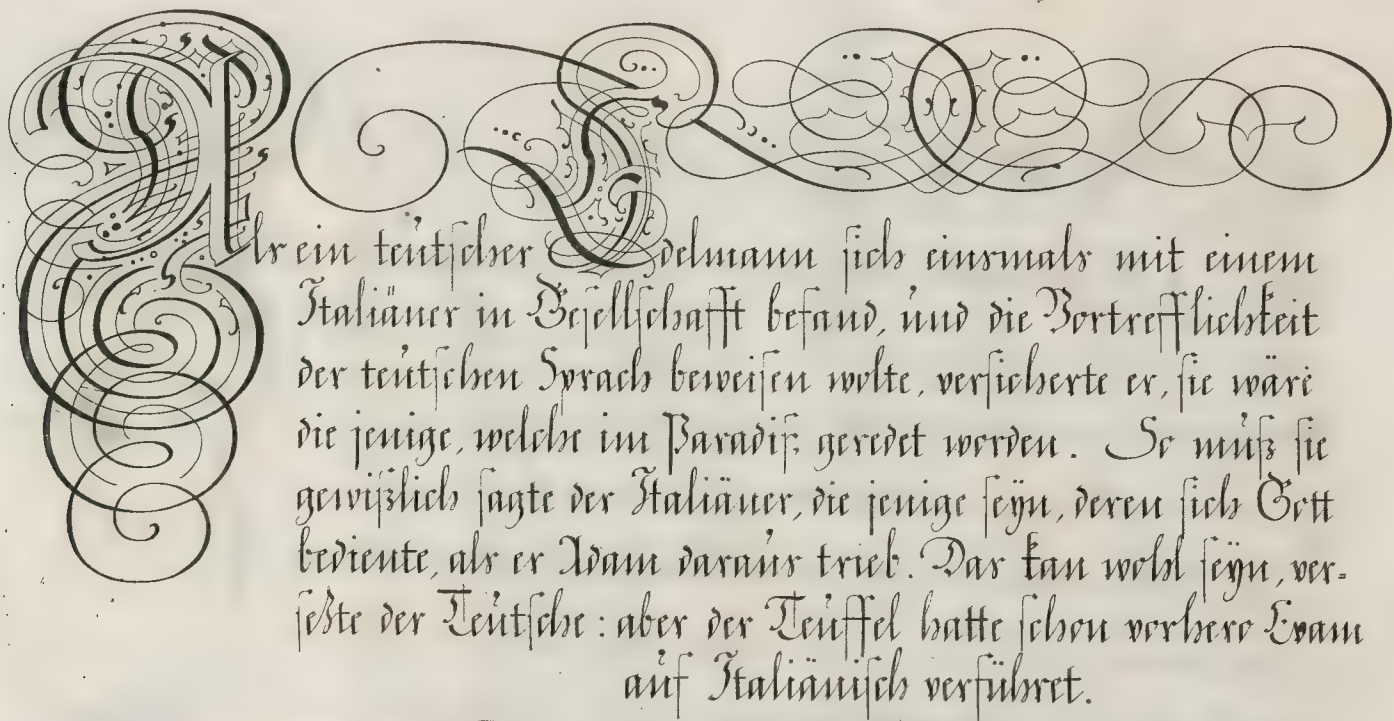 Als ein teutscher Edelmann sich einsmals mit einem
Italiäner in Gesellschafft befand, und die Vortrefflichkeit
der teutschen Sprach beweisen wolte, versicherte er, sie wäre
die jenige, welche im Paradiß geredet worden. So muß sie
gewißlich sagte der Italiäner, die jenige seyn, deren sich Gott
bediente, als er Adam daraus trieb. Das kan wohl seyn, ver=
setzte der Teutsche: aber der Teuffel hatte schon vorhero Evam
auf Italiänisch verführet.